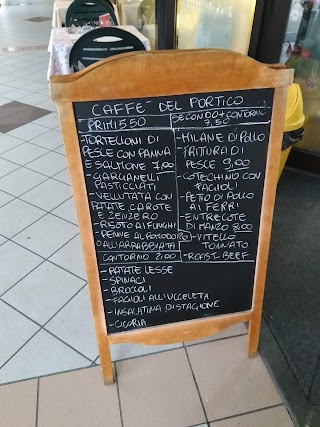 CAFFE' DEL PORTICO
PRIMI 5.50
-TORTELLONI DI
PESCE CON PANNA
E SALMONE 7,00
-GARGANELLI
PASTICCIATI
-VELLUTATA CON
PATATE CAROTE
E ZENZERO
-RISOTO AI FUNGHI
-PENNE AL POMODORO
O ALL'ARRABBIATA
SECONDO+CONTORNO
7,50
-MILANE DI POLLO
-FRITURA DI
PESCE 9,00
-COTECHINO CON
FAGIOLI
-PETTO DI POLLO
AI FERRI
-ENTRECOTE
DI MANZO 8,00
-VITELLO
TONNATO
-ROAST-BEEF
CONTORNO 2,00
-PATATE LESSE
-SPINACI
-BROCCOLI
-FAGIOLI ALL'UCCELETA
-INSALATINA DI STAGIONE
-CICORIA